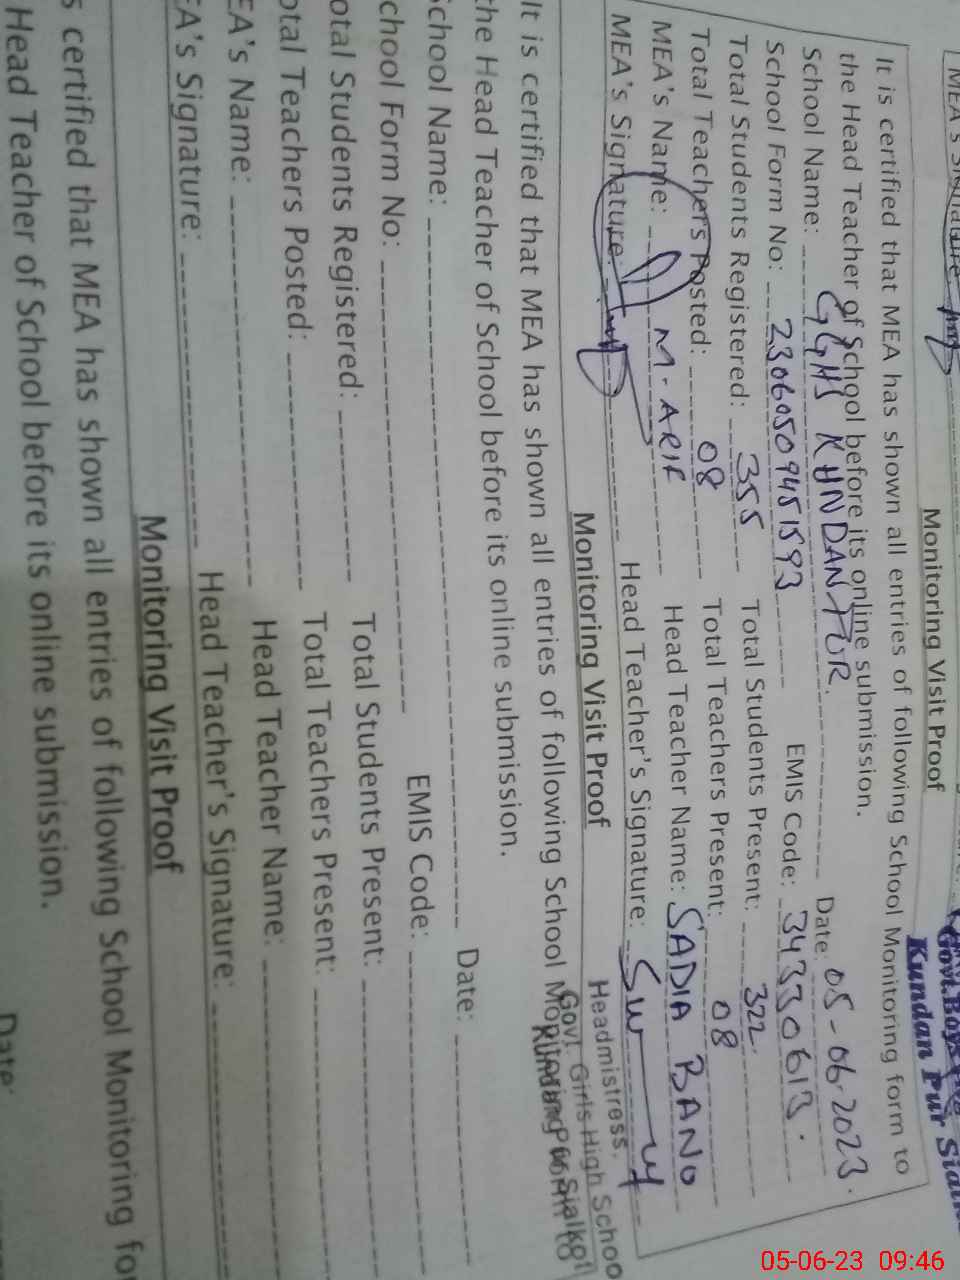 MEA's Signature
Govt. Boys
Kundan Pur Sialk
Monitoring Visit Proof
It is certified that MEA has shown all entries of following School Monitoring form to
the Head Teacher of School before its online submission.
School Name: GGHS KUNDAN PUR. Date: 05-06-2023.
School Form No: 2306050945 1593 EMIS Code: 34330613.
Total Students Registered: 355 Total Students Present: 322.
Total Teachers Posted: 08 Total Teachers Present: 08
MEA's Name: M. ARIF Head Teacher Name: SADIA BANO
MEA's Signature: Head Teacher's Signature:
Headmistress.
Govt. Girls High Schoo
Kundan Pur Sialkot
Monitoring Visit Proof
It is certified that MEA has shown all entries of following School Monitoring form to
the Head Teacher of School before its online submission.
School Name: Date:
chool Form No: EMIS Code:
otal Students Registered: Total Students Present:
otal Teachers Posted: Total Teachers Present:
EA's Name: Head Teacher Name:
EA's Signature: Head Teacher's Signature:
Monitoring Visit Proof
s certified that MEA has shown all entries of following School Monitoring fo
Head Teacher of School before its online submission.
Date:
05-06-23 09:46